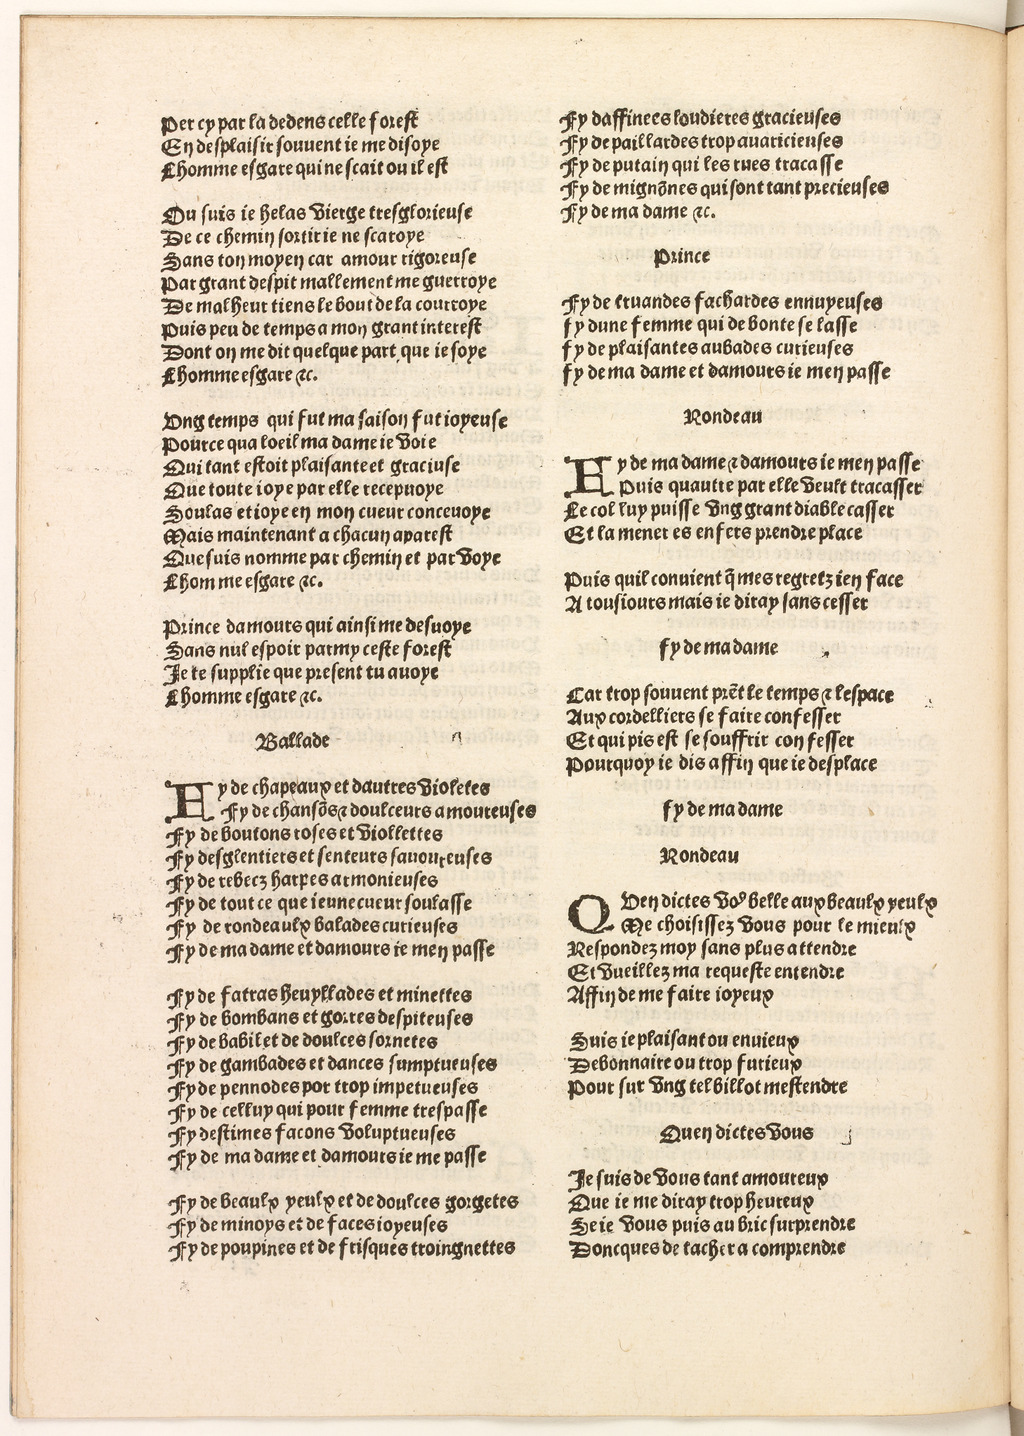 Per cy par la dedens celle forest
En desplaisir souvent ie me disoye
Lhomme esgare qui ne scait ou il est
Ou suis ie helas vierge tresglorieuse
De ce chemin sortir ie ne scaroye
Sans ton moyen car amour rigoreuse
Par grant despit mallement me guerroye
De malheur tiens le bout de la courroye
Puis peu de temps a mon grant interest
Dont on me dit quelque part que ie soye
Lhomme esgare ⁊c.
Vng temps qui fut ma saison fut ioyeuse
Pource qua loeil ma dame ie voie
Qui tant estoit plaisante et graciuse
Que toute ioye par elle recepuoye
Soulas et ioye en mon cueur concevoye
Mais maintenant a chacun aparest
Que suis nomme par chemin et par voye
Lhom me esgare ⁊c.
Prince damours qui ainsi me desuoye
Sans nul espoir parmy ceste forest
Je te supplie que present tu auoye
Lhomme esgare ⁊c.
Ballade
Fy de chapeaux et dautres violetes
Fy de chansõs ⁊ doulceurs amoureuses
Fy de boutons roses et viollettes
Fy desglentiers et senteurs sauoureuses
Fy de rebecz harpes armonieuses
Fy de tout ce que ieune cueur soulasse
Fy de rondeaulx balades curieuses
Fy de ma dame et damours ie men passe
Fy de fatras heuyllades et minettes
Fy de bombans et gorres despiteuses
Fy de babil et de doulces sornetes
Fy de gambades et dances sumptueuses
Fy de pennodes por trop impetueuses
Fy de celluy qui pour femme trespasse
Fy destimes facons voluptueuses
Fy de ma dame et damours ie me passe
Fy de beaulx yeulx et de doulces gorgetes
Fy de minoys et de faces ioyeuses
Fy de poupines et de frisques troingnettes
Fy daffinees loudieres gracieuses
Fy de paillardes trop auaricieuses
Fy de putain qui les rues tracasse
Fy de mignõnes qui sont tant precieuses
Fy de ma dame ⁊c.
Prince
Fy de truandes fachardes ennuyeuses
fy dune femme qui de bonte se lasse
fy de plaisantes aubades curieuses
fy de ma dame et damours ie men passe
Rondeau
Fy de ma dame ⁊ damours ie men passe
Puis quautre par elle veult tracasser
Le col luy puisse vng grant diable casser
Et la mener es enfers prendre place
Puis quil conuient q̃ mes regretz ien face
A tousiours mais ie diray sans cesser
fy de ma dame
Car trop souvent prẽt le temps ⁊ lespace
Aux cordelliers se faire confesser
Et qui pis est se souffrir con fesser
Pourquoy ie dis affin que ie desplace
fy de ma dame
Rondeau
Quen dictes voꝰ belle aux beaulx yeulx
Me choisissez vous pour le mieulx
Respondez moy sans plus attendre
Et vueillez ma requeste entendre
Affin de me faire ioyeux
Suis ie plaisant ou enuieux
Debonnaire ou trop furieux
Pour sur vng tel billot mestendre
Quen dictes vous
Je suis de vous tant amoureux
Que ie me diray trop heureux
Se ie vous puis au bric surprendre
Doncques de tacher a comprendre